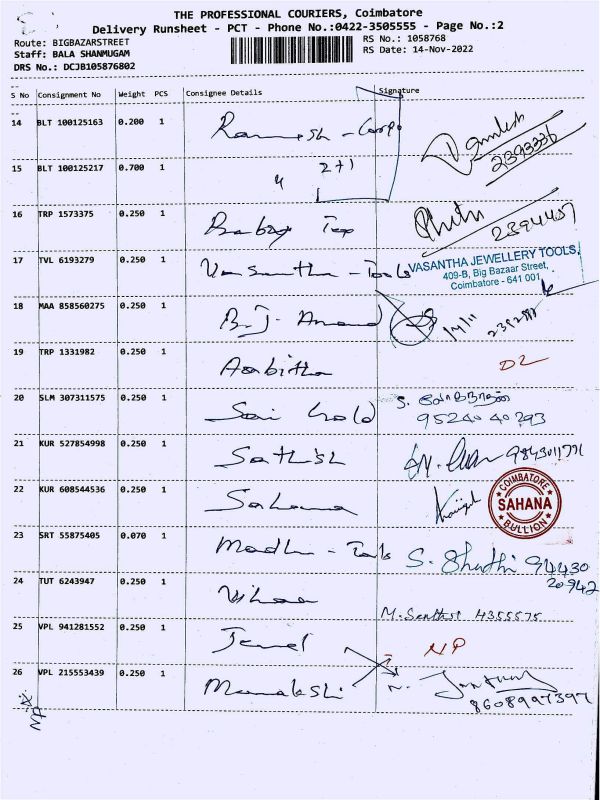 THE PROFESSIONAL COURIERS, Coimbatore
Delivery Runsheet - PCT - Phone No.:0422-3505555 - Page No.:2
Route: BIGBAZARSTREET
RS No.: 1058768
Staff: BALA SHANMUGAM
RS Date: 14-Nov-2022
DRS No.: DCJB105876802
S No Consignment No Weight PCS Consignee Details Signature
14 BLT 100125163 0.200 1 Ramesh - Corpo
2393336
15 BLT 100125217 0.700 1 " 2+1
16 TRP 1573375 0.250 1 Tex
2394487
17 TVL 6193279 0.250 1 Vasantha - Tools
VASANTHA JEWELLERY TOOLS,
409-B, Big Bazaar Street,
Coimbatore - 641 001
18 MAA 858560275 0.250 1 B.J. Anand 14/11
19 TRP 1331982 0.250 1 Aabitha DL
20 SLM 307311575 0.250 1 Sai Gold
95240 40293
21 KUR 527854998 0.250 1 Sathish
22 KUR 608544536 0.250 1 Sahana
COIMBATORE
SAHANA
BULLION
23 SRT 55875405 0.070 1 Madhu - Tools S. Shuthi 94430
20942
24 TUT 6243947 0.250 1 M. Senthil 4355575
25 VPL 941281552 0.250 1 Jewel NP
26 VPL 215553439 0.250 1 Meenakshi N.
8608997397